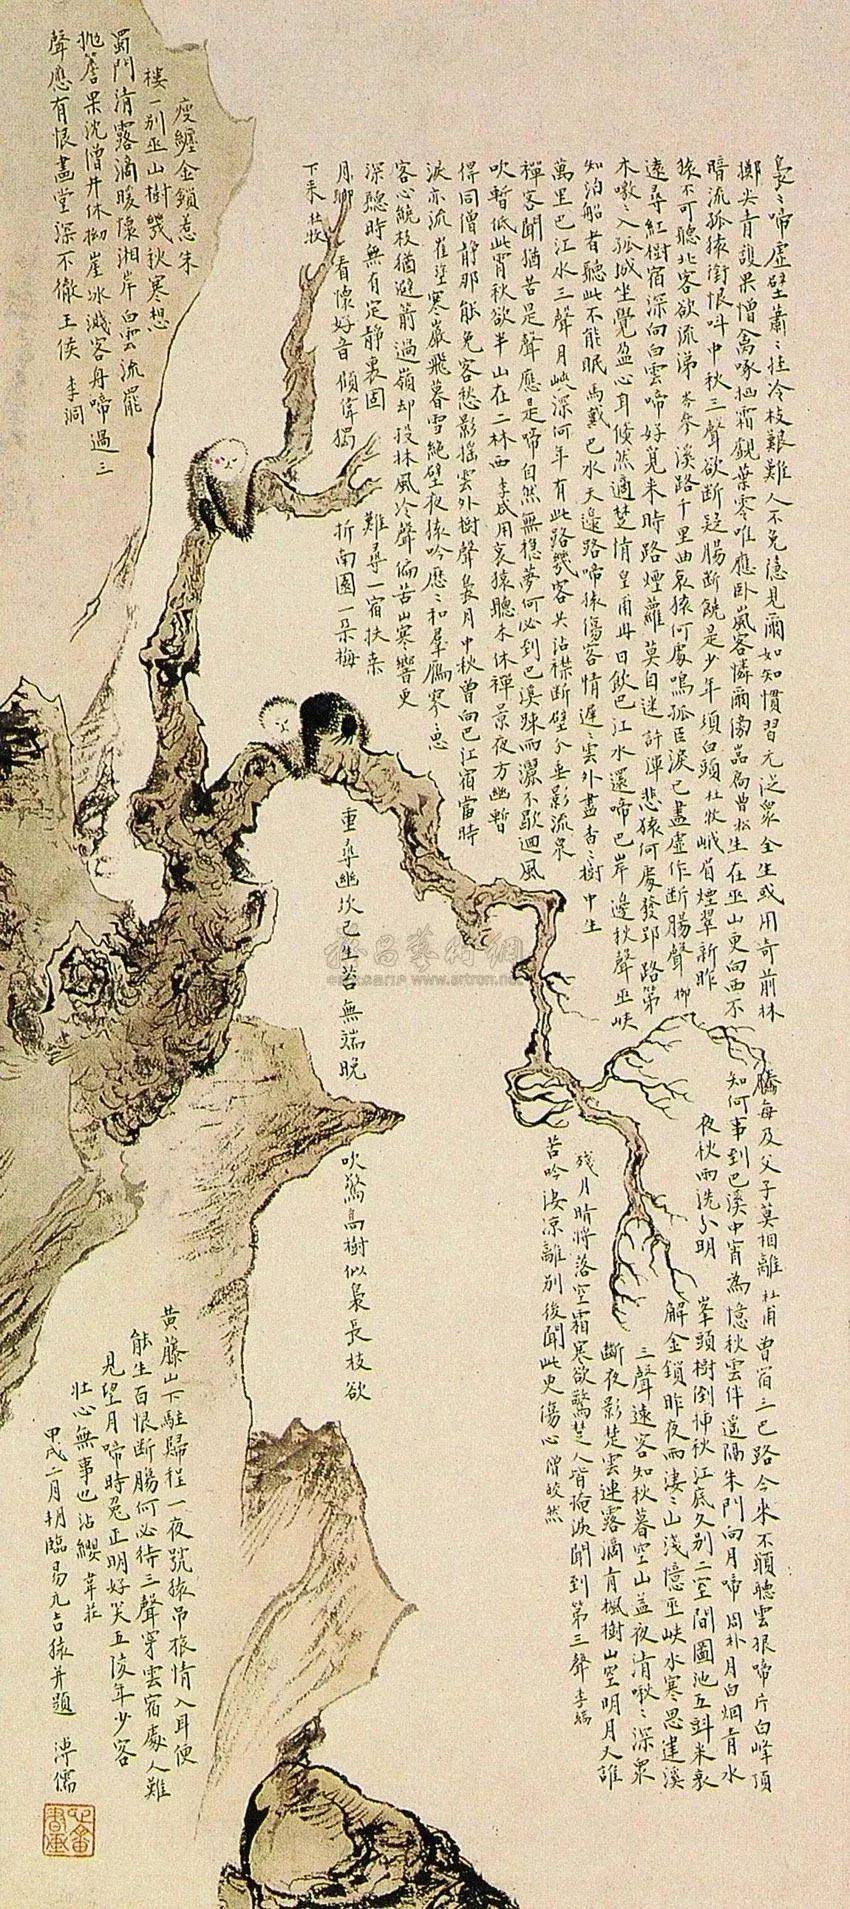 裊裊啼虛壁蕭蕭挂冷枝艱難人不免隱見爾如知慣習元從眾全生或用奇前林
騰每及父子莫相離 杜甫 曾宿三巴路今來不願聽雲根啼片白峰頂
擲尖青護果憎禽啄拋霜覷葉零唯應臥嵐客憐爾傍嵓扃 曹松 生在巫山更向西不
知何事到巴溪中宵為憶秋雲伴遙隔朱門向月啼 周朴 月白烟青水
暗流孤猿銜恨叫中秋三聲欲斷疑腸斷饒是少年須白頭 杜牧 峨眉煙翠新昨
夜秋雨洗分明
峯頭樹倒揷秋江底久別二室間圖池五斗米哀
猿不可聽北客欲流涕 岑參 溪路千里曲哀猿何處鳴孤臣淚已盡虛作斷腸聲 柳
解金鎖昨夜雨淒淒山淺憶巫峽水寒思建溪
遠尋紅樹宿深向白雲啼好覓來時路煙蘿莫自迷 許渾 悲猿何處發郢路第
三聲遠客知秋暮空山益夜清啾啾深眾
木噭噭入孤城坐覺盈心耳翛然適楚情 皇甫冉 日飲巴江水還啼巴岸邊秋聲巫峽
斷夜影楚雲連露滴青楓樹山空明月天誰
知泊船者聽此不能眠 馬戴 巴水天邊路啼猿傷客情遲遲雲外盡杳杳樹中生
殘月曉將落空霜寒欲驚楚人皆掩淚聞到第三聲 李端
萬里巴江水三聲月峽深何年有此路幾客共沾襟斷壁分垂影流泉
苦吟淒涼離別後聞此更傷心 僧皎然
禪客聞猶苦是聲應是啼自然無穩夢何必到巴溪疎雨灑不歇迴風
吹暫低此宵秋欲半山在二林西 李咸用 哀猿聽未休禪景夜方幽暫
得同僧靜那能免客愁影搖雲外樹聲裊月中秋曾向巴江宿當時
淚亦流 崔塗 寒巖飛暮雪絕壁夜猿吟歷歷和羣雁寒寒思
客心繞枝猶避箭過嶺却投林風冷聲偏苦山寒響更
深聽時無有定靜裏固
難尋一宿扶桑
月聊
看懷好音 傾偉
獨
折南園一朵梅
重尋幽坎已生苔無端晚
吹驚高樹似裊長枝欲
下來 杜牧
瘦纏金鎖惹朱
樓一別巫山樹幾秋寒想
蜀門清露滴暖懷湘岸白雲流罷
拋簷果沈僧井休拗崖冰濺客舟啼過三
聲應有恨畫堂深不徹王侯 李洞
黃藤山下駐歸程一夜號猿弔旅情入耳便
能生百恨斷腸何必待三聲穿雲宿處人難
見望月啼時兔正明好笑五陵年少客
壯心無事也沾纓 韋莊
甲戌二月朔臨易元吉猿并題 溥儒
心畬書畫
www.artron.net